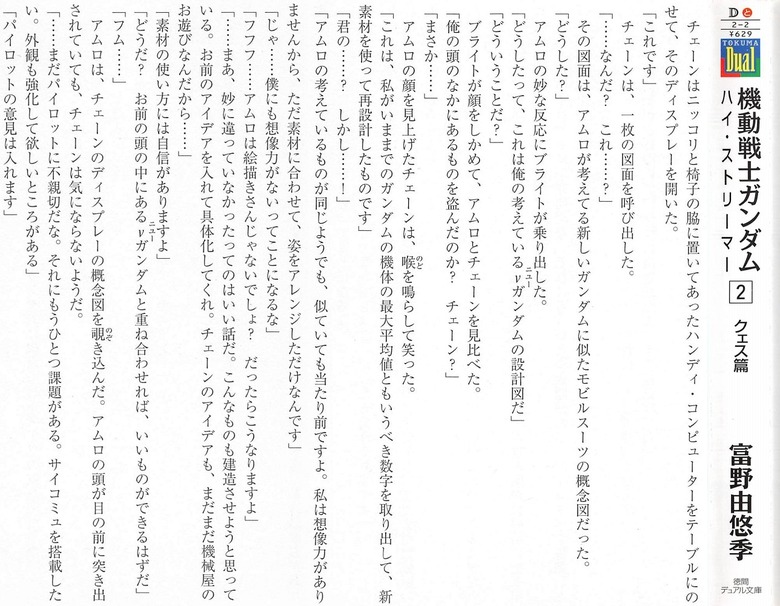 Dと
2-2
¥629
TOKUMA
Dual
機動戦士ガンダム
ハイ・ストリーマー
2
クェス篇
富野由悠季
徳間
デュアル文庫
チェーンはニッコリと椅子の脇に置いてあったハンディ・コンピューターをテーブルにの
せて、そのディスプレーを開いた。
「これです」
チェーンは、一枚の図面を呼び出した。
「……なんだ？　これ……？」
その図面は、アムロが考えてる新しいガンダムに似たモビルスーツの概念図だった。
「どうした？」
アムロの妙な反応にブライトが乗り出した。
「どうしたって、これは俺の考えているνガンダムの設計図だ」
ニュー
「どういうことだ？」
ブライトが顔をしかめて、アムロとチェーンを見比べた。
「俺の頭のなかにあるものを盗んだのか？　チェーン？」
「まさか……」
アムロの顔を見上げたチェーンは、喉を鳴らして笑った。
のど
「これは、私がいままでのガンダムの機体の最大平均値ともいうべき数字を取り出して、新
素材を使って再設計したものです」
「君の……？　しかし……！」
「アムロの考えているものが同じようでも、似ていても当たり前ですよ。私は想像力があり
ませんから、ただ素材に合わせて、姿をアレンジしただけなんです」
「じゃ……僕にも想像力がないってことになるな」
「フフフ……アムロは絵描きさんじゃないでしょ？　だったらこうなりますよ」
「……まあ、妙に違っていなかったってのはいい話だ。こんなものも建造させようと思って
いる。お前のアイデアを入れて具体化してくれ。チェーンのアイデアも、まだまだ機械屋の
お遊びなんだから……」
「素材の使い方には自信がありますよ」
「どうだ？　お前の頭の中にあるνガンダムと重ね合わせれば、いいものができるはずだ」
ニュー
「フム……」
アムロは、チェーンのディスプレーの概念図を覗き込んだ。アムロの頭が目の前に突き出
のぞ
されていても、チェーンは気にならないようだ。
「……まだパイロットに不親切だな。それにもうひとつ課題がある。サイコミュを搭載した
い。外観も強化して欲しいところがある」
「パイロットの意見は入れます」